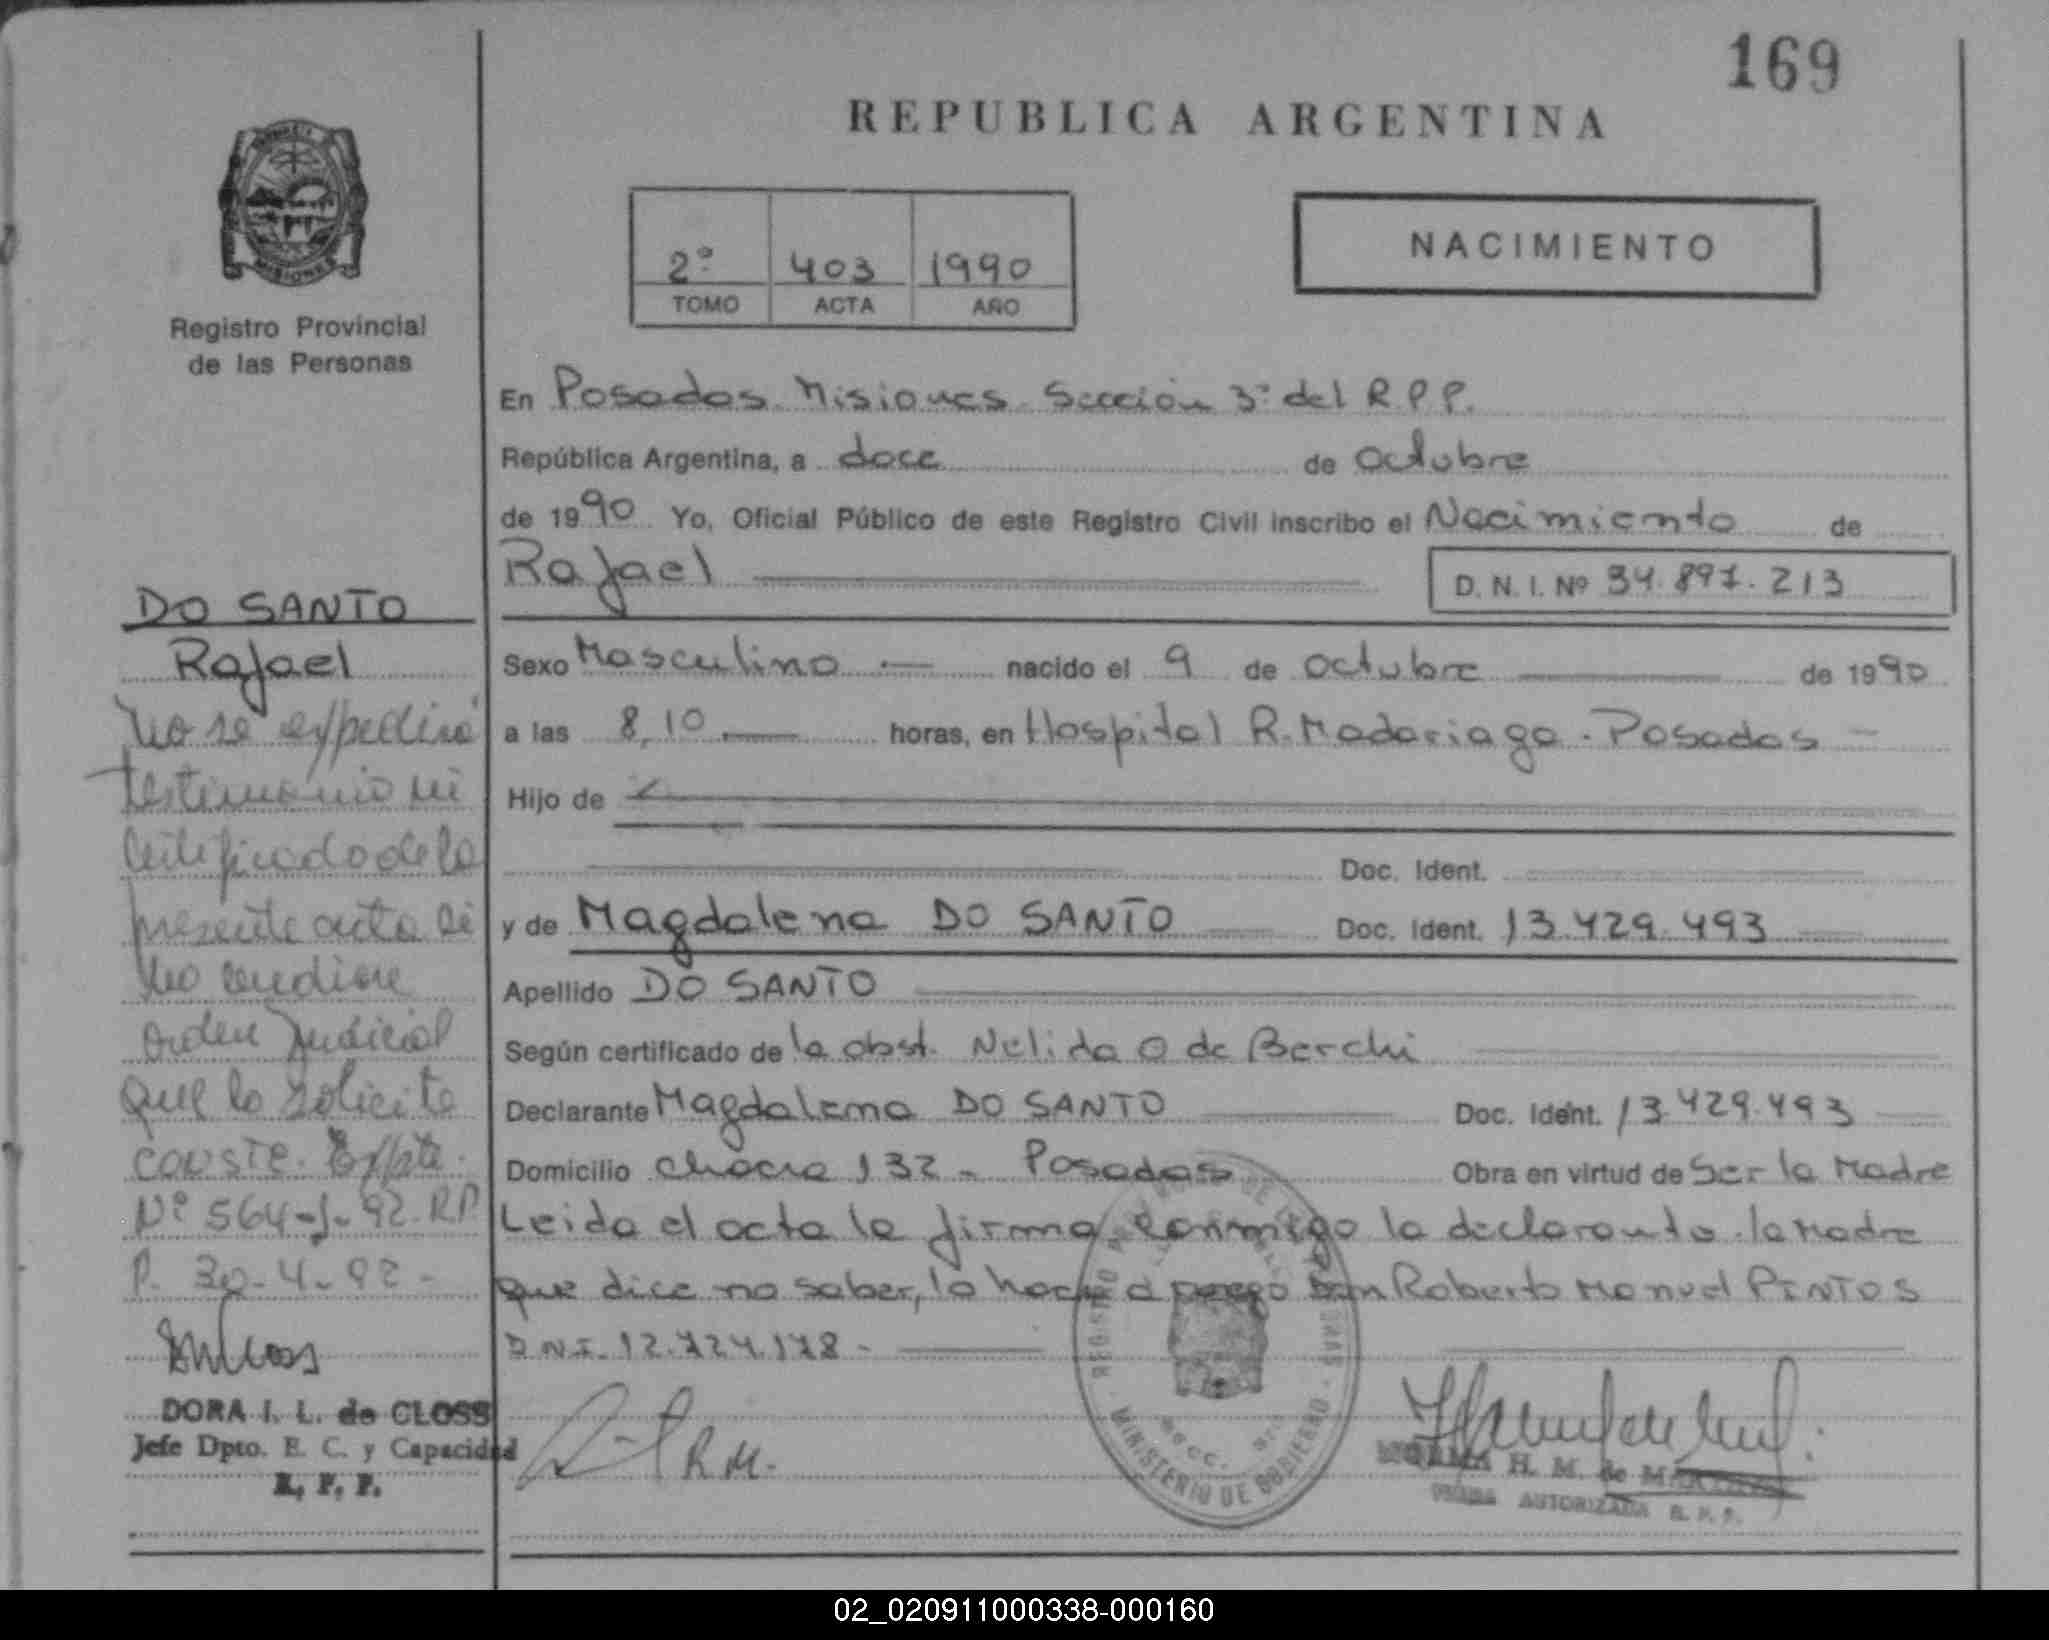 169
REPUBLICA ARGENTINA
MISIONES
Registro Provincial
de las Personas
2º 403 1990
TOMO ACTA AÑO
NACIMIENTO
En Posadas Misiones Sección 3ª del R.P.P.
República Argentina, a doce de octubre
de 1990 Yo, Oficial Público de este Registro Civil inscribo el Nacimiento de
Rafael
D. N. I. Nº 34.897.213
Sexo Masculino nacido el 9 de octubre de 1990
a las 8,10 horas, en Hospital R. Madariaga - Posadas
Hijo de
Doc. Ident.
y de Magdalena DO SANTO Doc. Ident. 13.429.493
Apellido DO SANTO
Según certificado de la obst. Nelida O de Berchi
Declarante Magdalena DO SANTO Doc. Ident. 13.429.493
Domicilio chacra 132 - Posadas Obra en virtud de Ser la Madre
Leida el acta la firma conmigo la declarante la Madre
que dice no saber, lo hace a ruego Don Roberto Manuel PINTOS
D.N.I. 12.724.178 -
R.M.
MINISTERIO DE GOBIERNO
H. M. de
AUTORIZADA R. P. P.
DO SANTO
Rafael
No se expedirá
testimonio ni
certificado de la
presente acta si
no mediare
orden Judicial
que lo solicite
CONSTE. Expte.
Nº 564-J-92. R.P.
P. 30-4-92-
DORA I. L. de CLOSS
Jefe Dpto. E. C. y Capacidad
R. P. P.
02_020911000338-000160